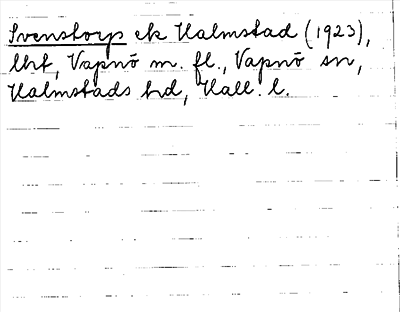 Svenstorp ek Halmstad (1923),
lht, Vapnö m. fl., Vapnö sn,
Halmstads hd, Hall. l.